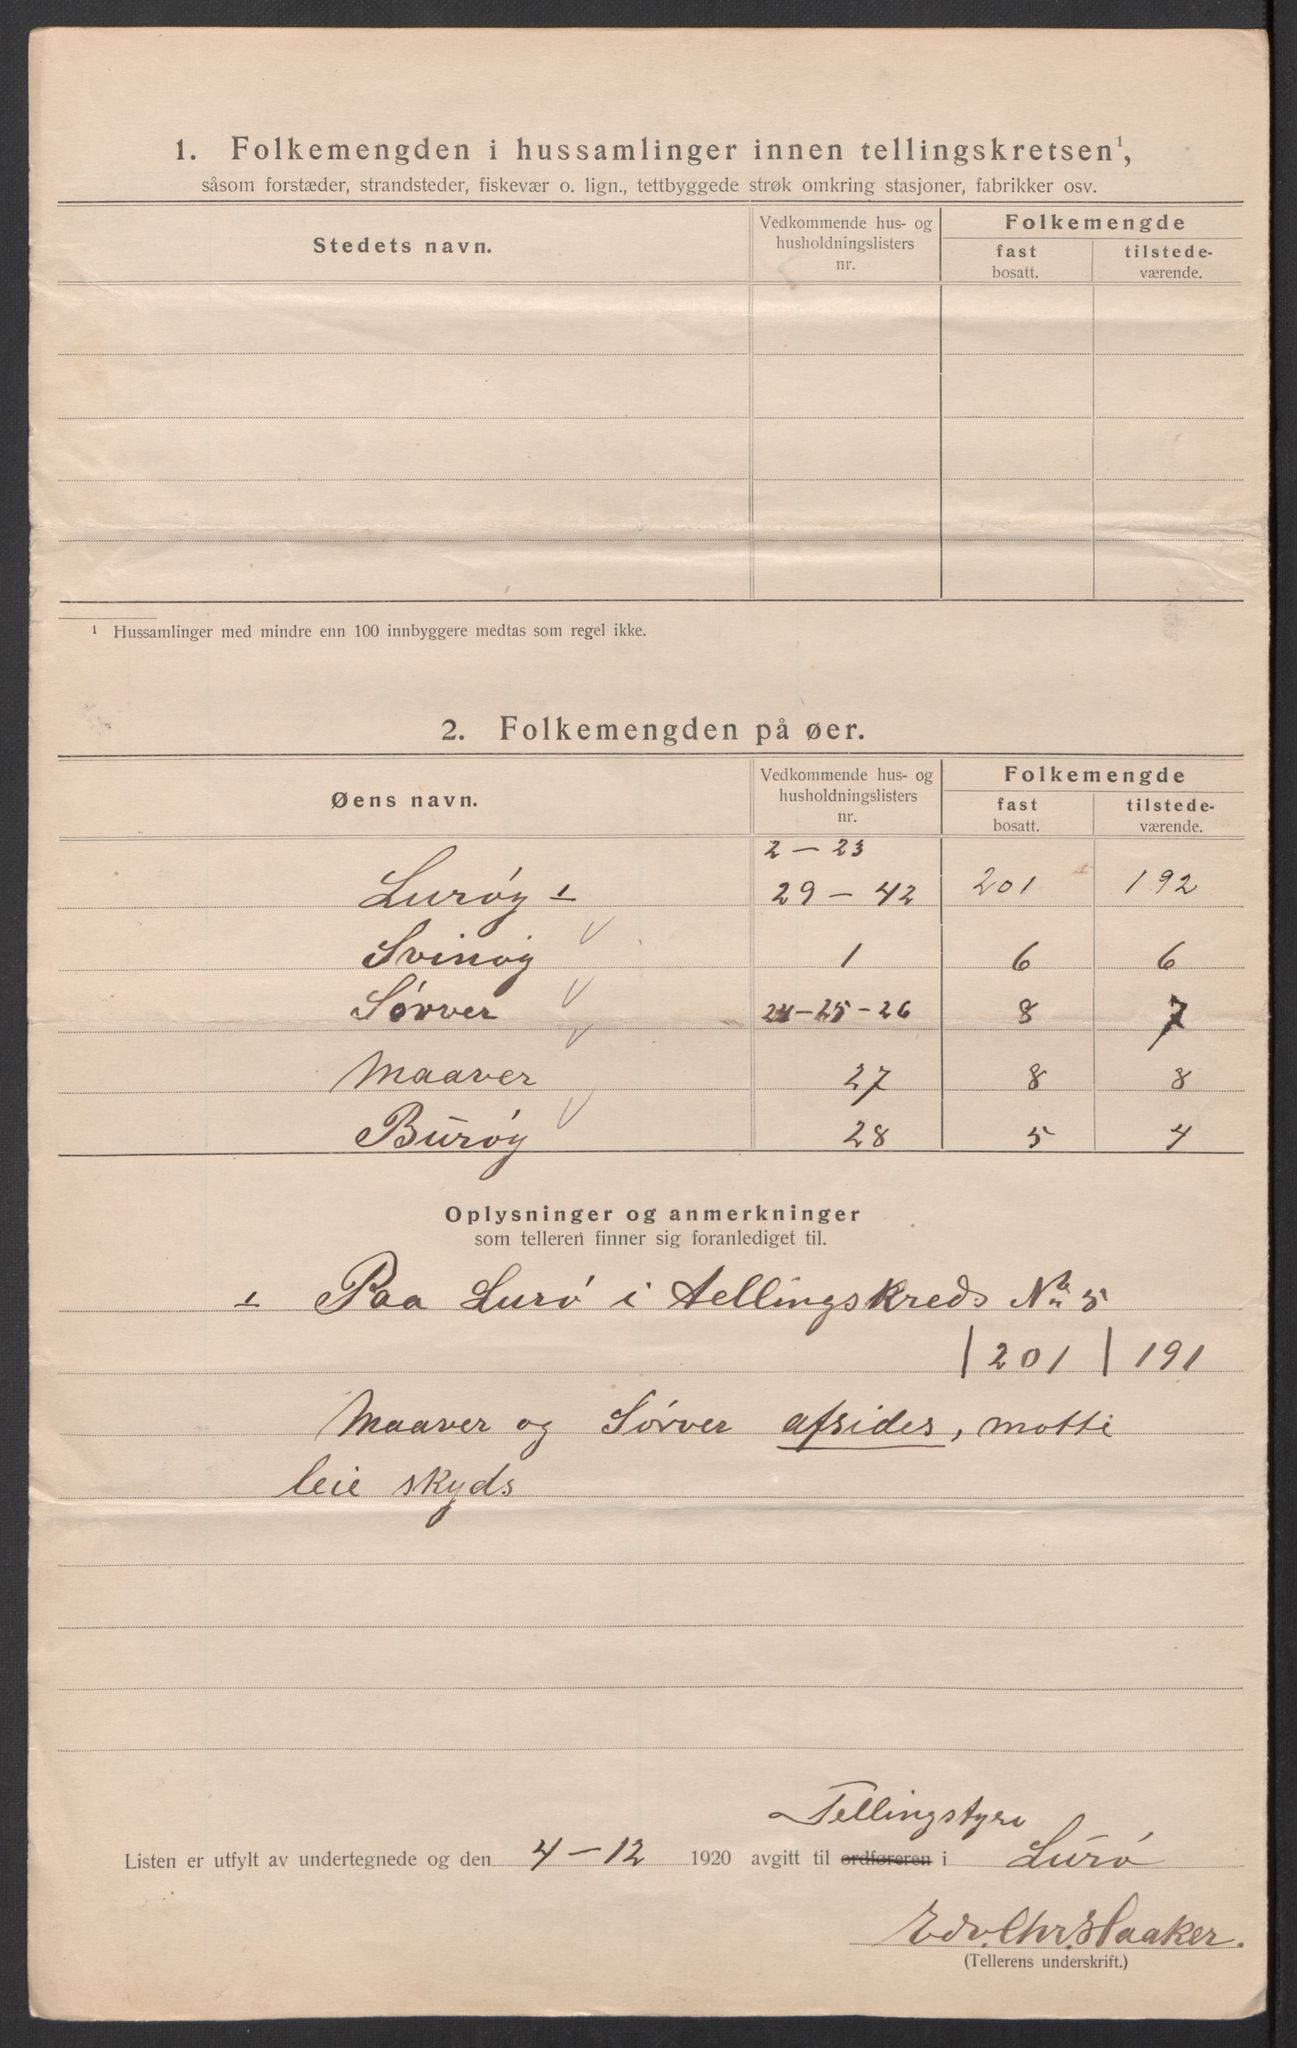 1. Folkemengden i hussamlinger innen tellingskretsen¹,
såsom forstæder, strandsteder, fiskevær o. lign., tettbyggede strøk omkring stasjoner, fabrikker osv.
Stedets navn. Vedkommende hus- og husholdningslisters nr. Folkemengde
fast bosatt. tilstede-værende.
¹ Hussamlinger med mindre enn 100 innbyggere medtas som regel ikke.
2. Folkemengden på øer.
Øens navn. Vedkommende hus- og husholdningslisters nr. Folkemengde
fast bosatt. tilstede-værende.
2 — 23
Lurøy 1 29 — 42 201 192
Svinøy 1 6 6
Sørver 24 — 25 — 26 8 7
Maaver 27 8 8
Burøy 28 5 4
Oplysninger og anmerkninger
som telleren finner sig foranlediget til.
1 Paa Lurø i tellingskreds No 5
| 201 | 191
Maaver og Sørver afsides, motte
leie skyds
Tellingstyre
Listen er utfylt av undertegnede og den 4 – 12 1920 avgitt til ordføreren i Lurø
Edv. Chr. Haaker.
(Tellerens underskrift.)